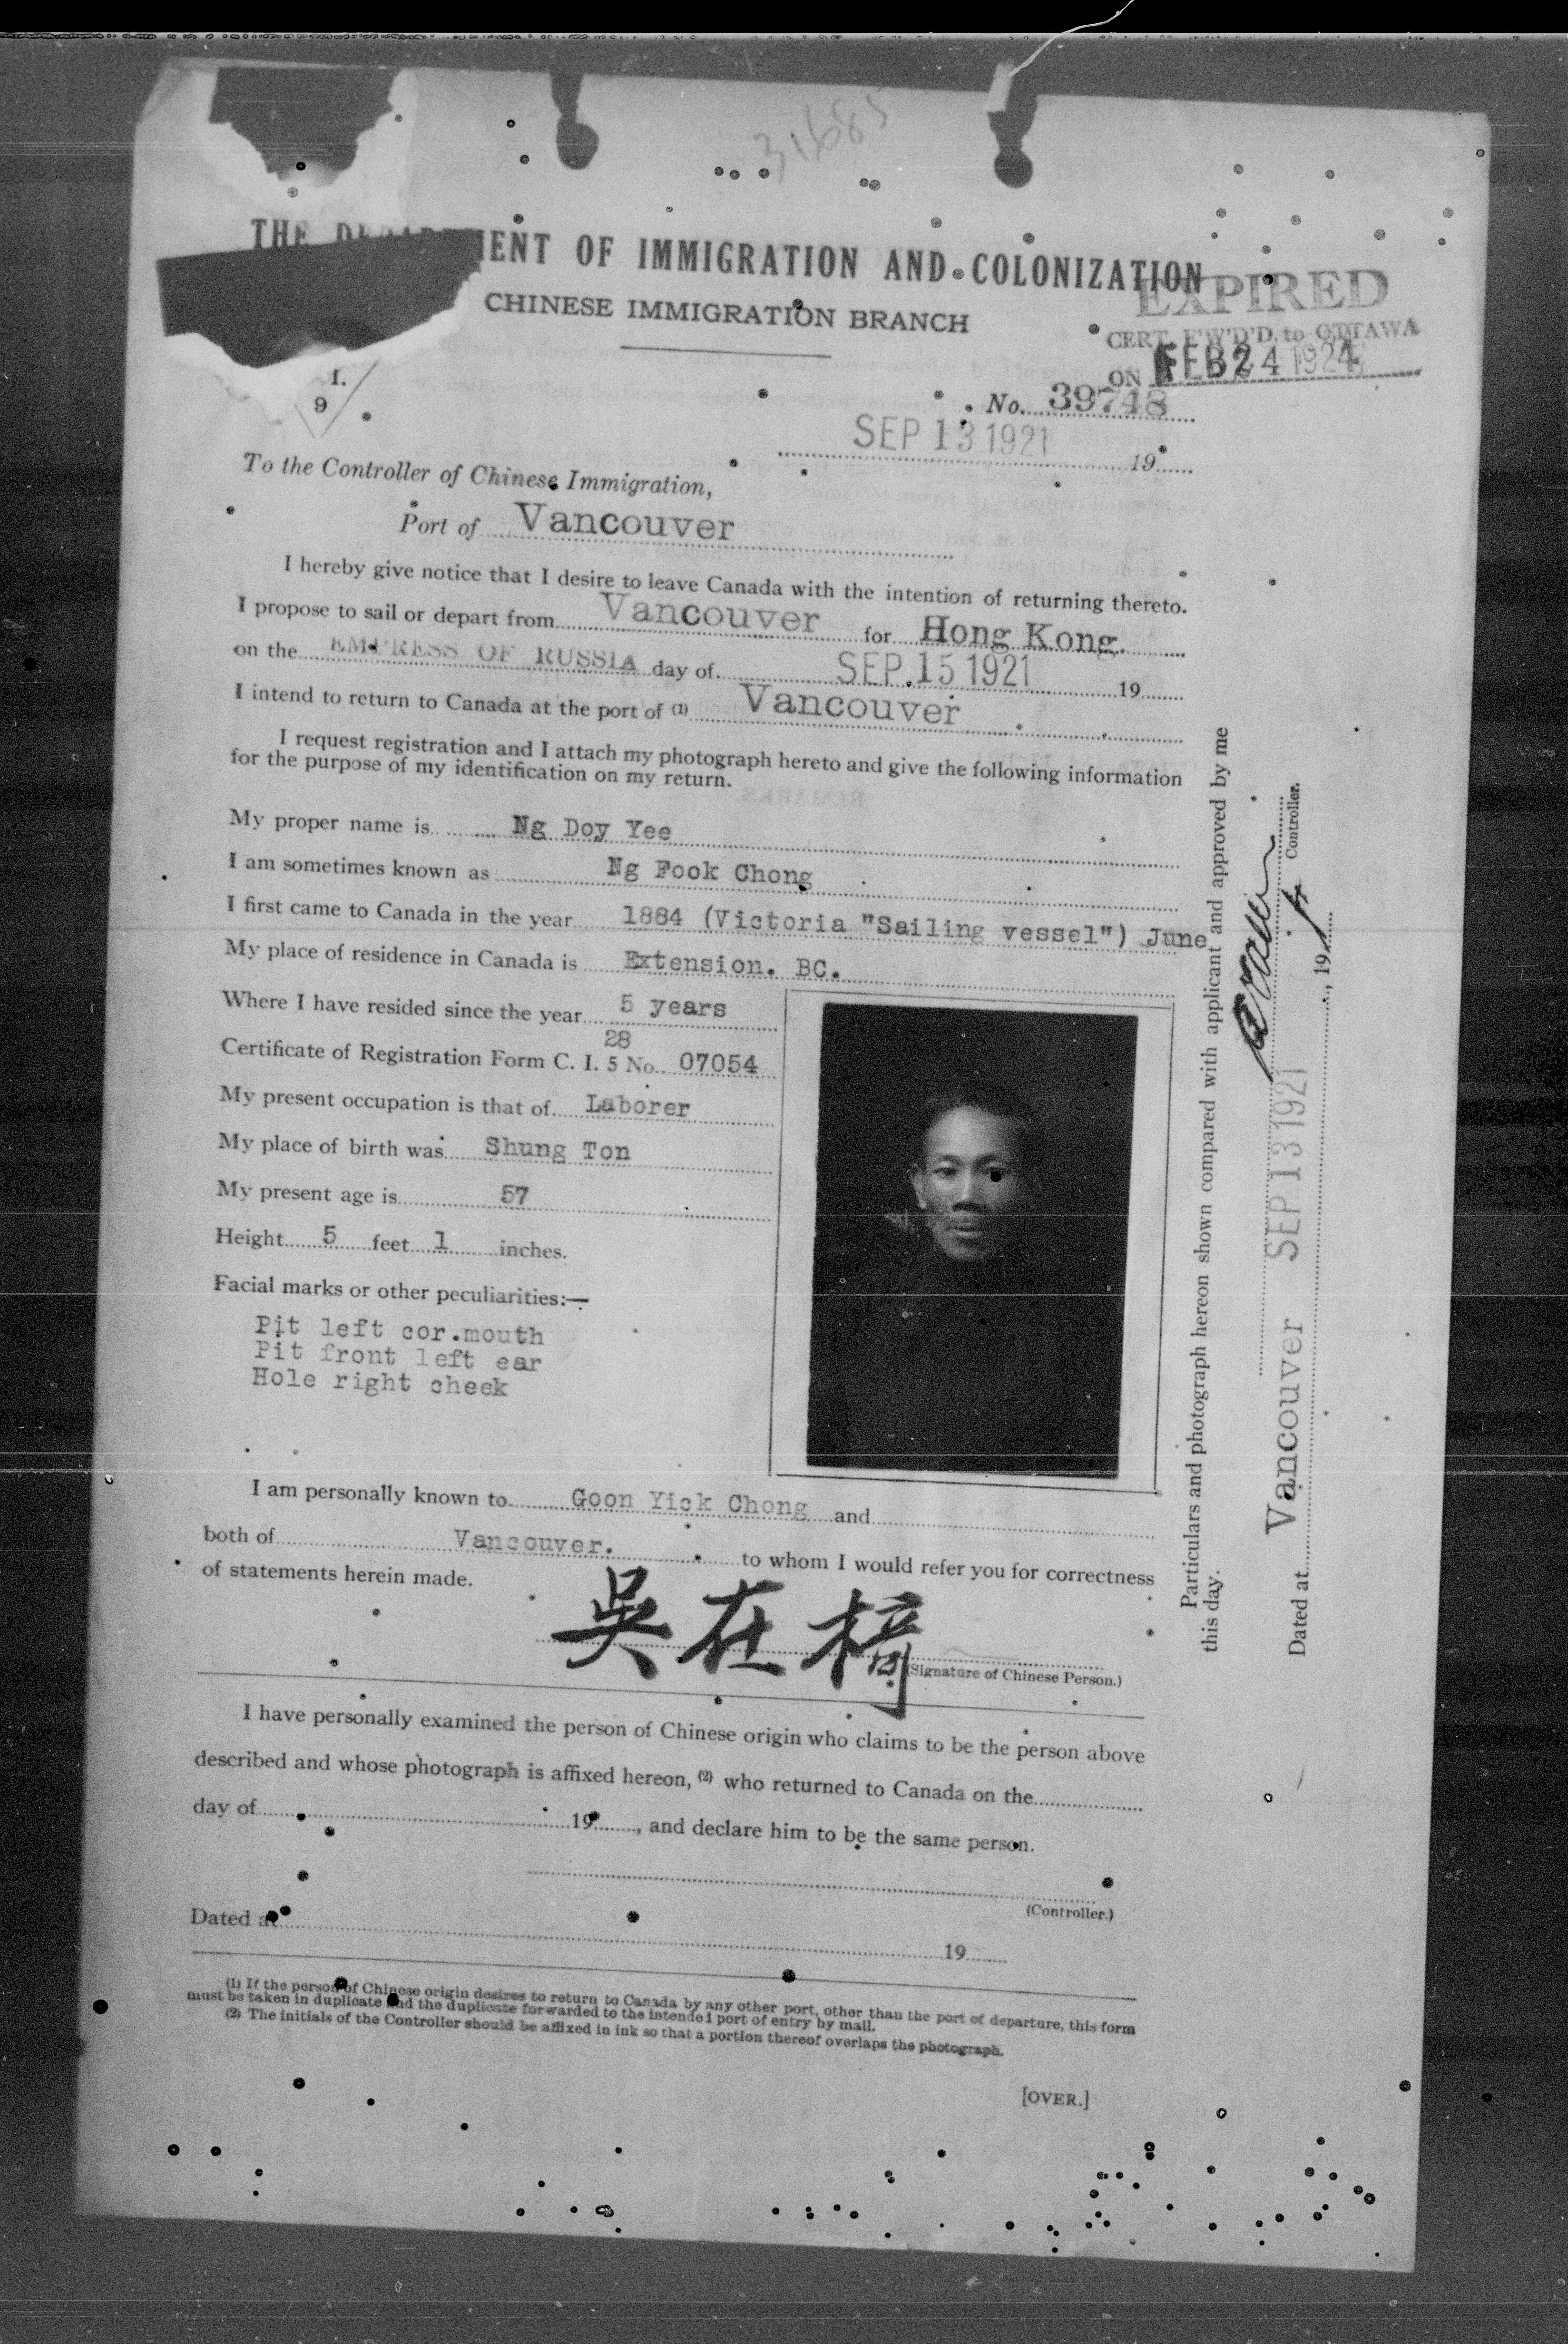 31685
THE DEPARTMENT OF IMMIGRATION AND COLONIZATION
CHINESE IMMIGRATION BRANCH
EXPIRED
CERT. F'W'D'D. to OTTAWA
ON FEB 24 1924
I.
9
No. 39748
SEP 13 1921 19
To the Controller of Chinese Immigration,
Port of Vancouver
I hereby give notice that I desire to leave Canada with the intention of returning thereto.
I propose to sail or depart from Vancouver for Hong Kong.
on the EMPRESS OF RUSSIA day of SEP. 15 1921 19
I intend to return to Canada at the port of (1) Vancouver
I request registration and I attach my photograph hereto and give the following information
for the purpose of my identification on my return.
My proper name is Ng Doy Yee
I am sometimes known as Ng Fook Chong
I first came to Canada in the year 1884 (Victoria "Sailing vessel") June
My place of residence in Canada is Extension. BC.
Where I have resided since the year 5 years
28
Certificate of Registration Form C. I. 5 No. 07054
My present occupation is that of Laborer
My place of birth was Shung Ton
My present age is 57
Height 5 feet 1 inches.
Facial marks or other peculiarities:—
Pit left cor.mouth
Pit front left ear
Hole right cheek
I am personally known to Goon Yick Chong and
both of Vancouver. to whom I would refer you for correctness
of statements herein made.
吳在
(Signature of Chinese Person.)
I have personally examined the person of Chinese origin who claims to be the person above
described and whose photograph is affixed hereon, (2) who returned to Canada on the
day of 19, and declare him to be the same person.
(Controller.)
Dated at 19
(1) If the person of Chinese origin desires to return to Canada by any other port, other than the port of departure, this form
must be taken in duplicate and the duplicate forwarded to the intended port of entry by mail.
(2) The initials of the Controller should be affixed in ink so that a portion thereof overlaps the photograph.
[OVER.]
Particulars and photograph hereon shown compared with applicant and approved by me
this day.
Controller.
Dated at Vancouver SEP 13 1921, 19